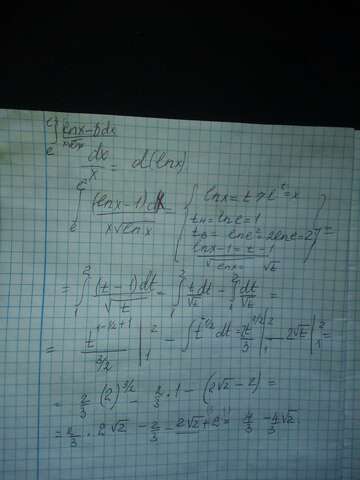 ∫ₑ^{e²} (lnx-1)dx / x√lnx
dx/x = d(lnx)
∫ₑ^{e²} (lnx-1)dx / x√lnx = { lnx=t ⇒ e^t=x
tн=lne=1
tв=lne²=2lne=2
(lnx-1)/√lnx = (t-1)/√t } =
= ∫₁² (t-1)dt/√t = ∫₁² tdt/√t - ∫₁² dt/√t =
= t^{1-1/2+1} / (3/2) |₁² - ∫t^{-1/2}dt = t^{3/2} |₁² - 2√t |₁² =
= 2/3 (2)^{3/2} - 2/3 · 1 - (2√2 - 2) =
= 2/3 · 2√2 - 2/3 - 2√2 + 2 = 4/3 - 4/3√2